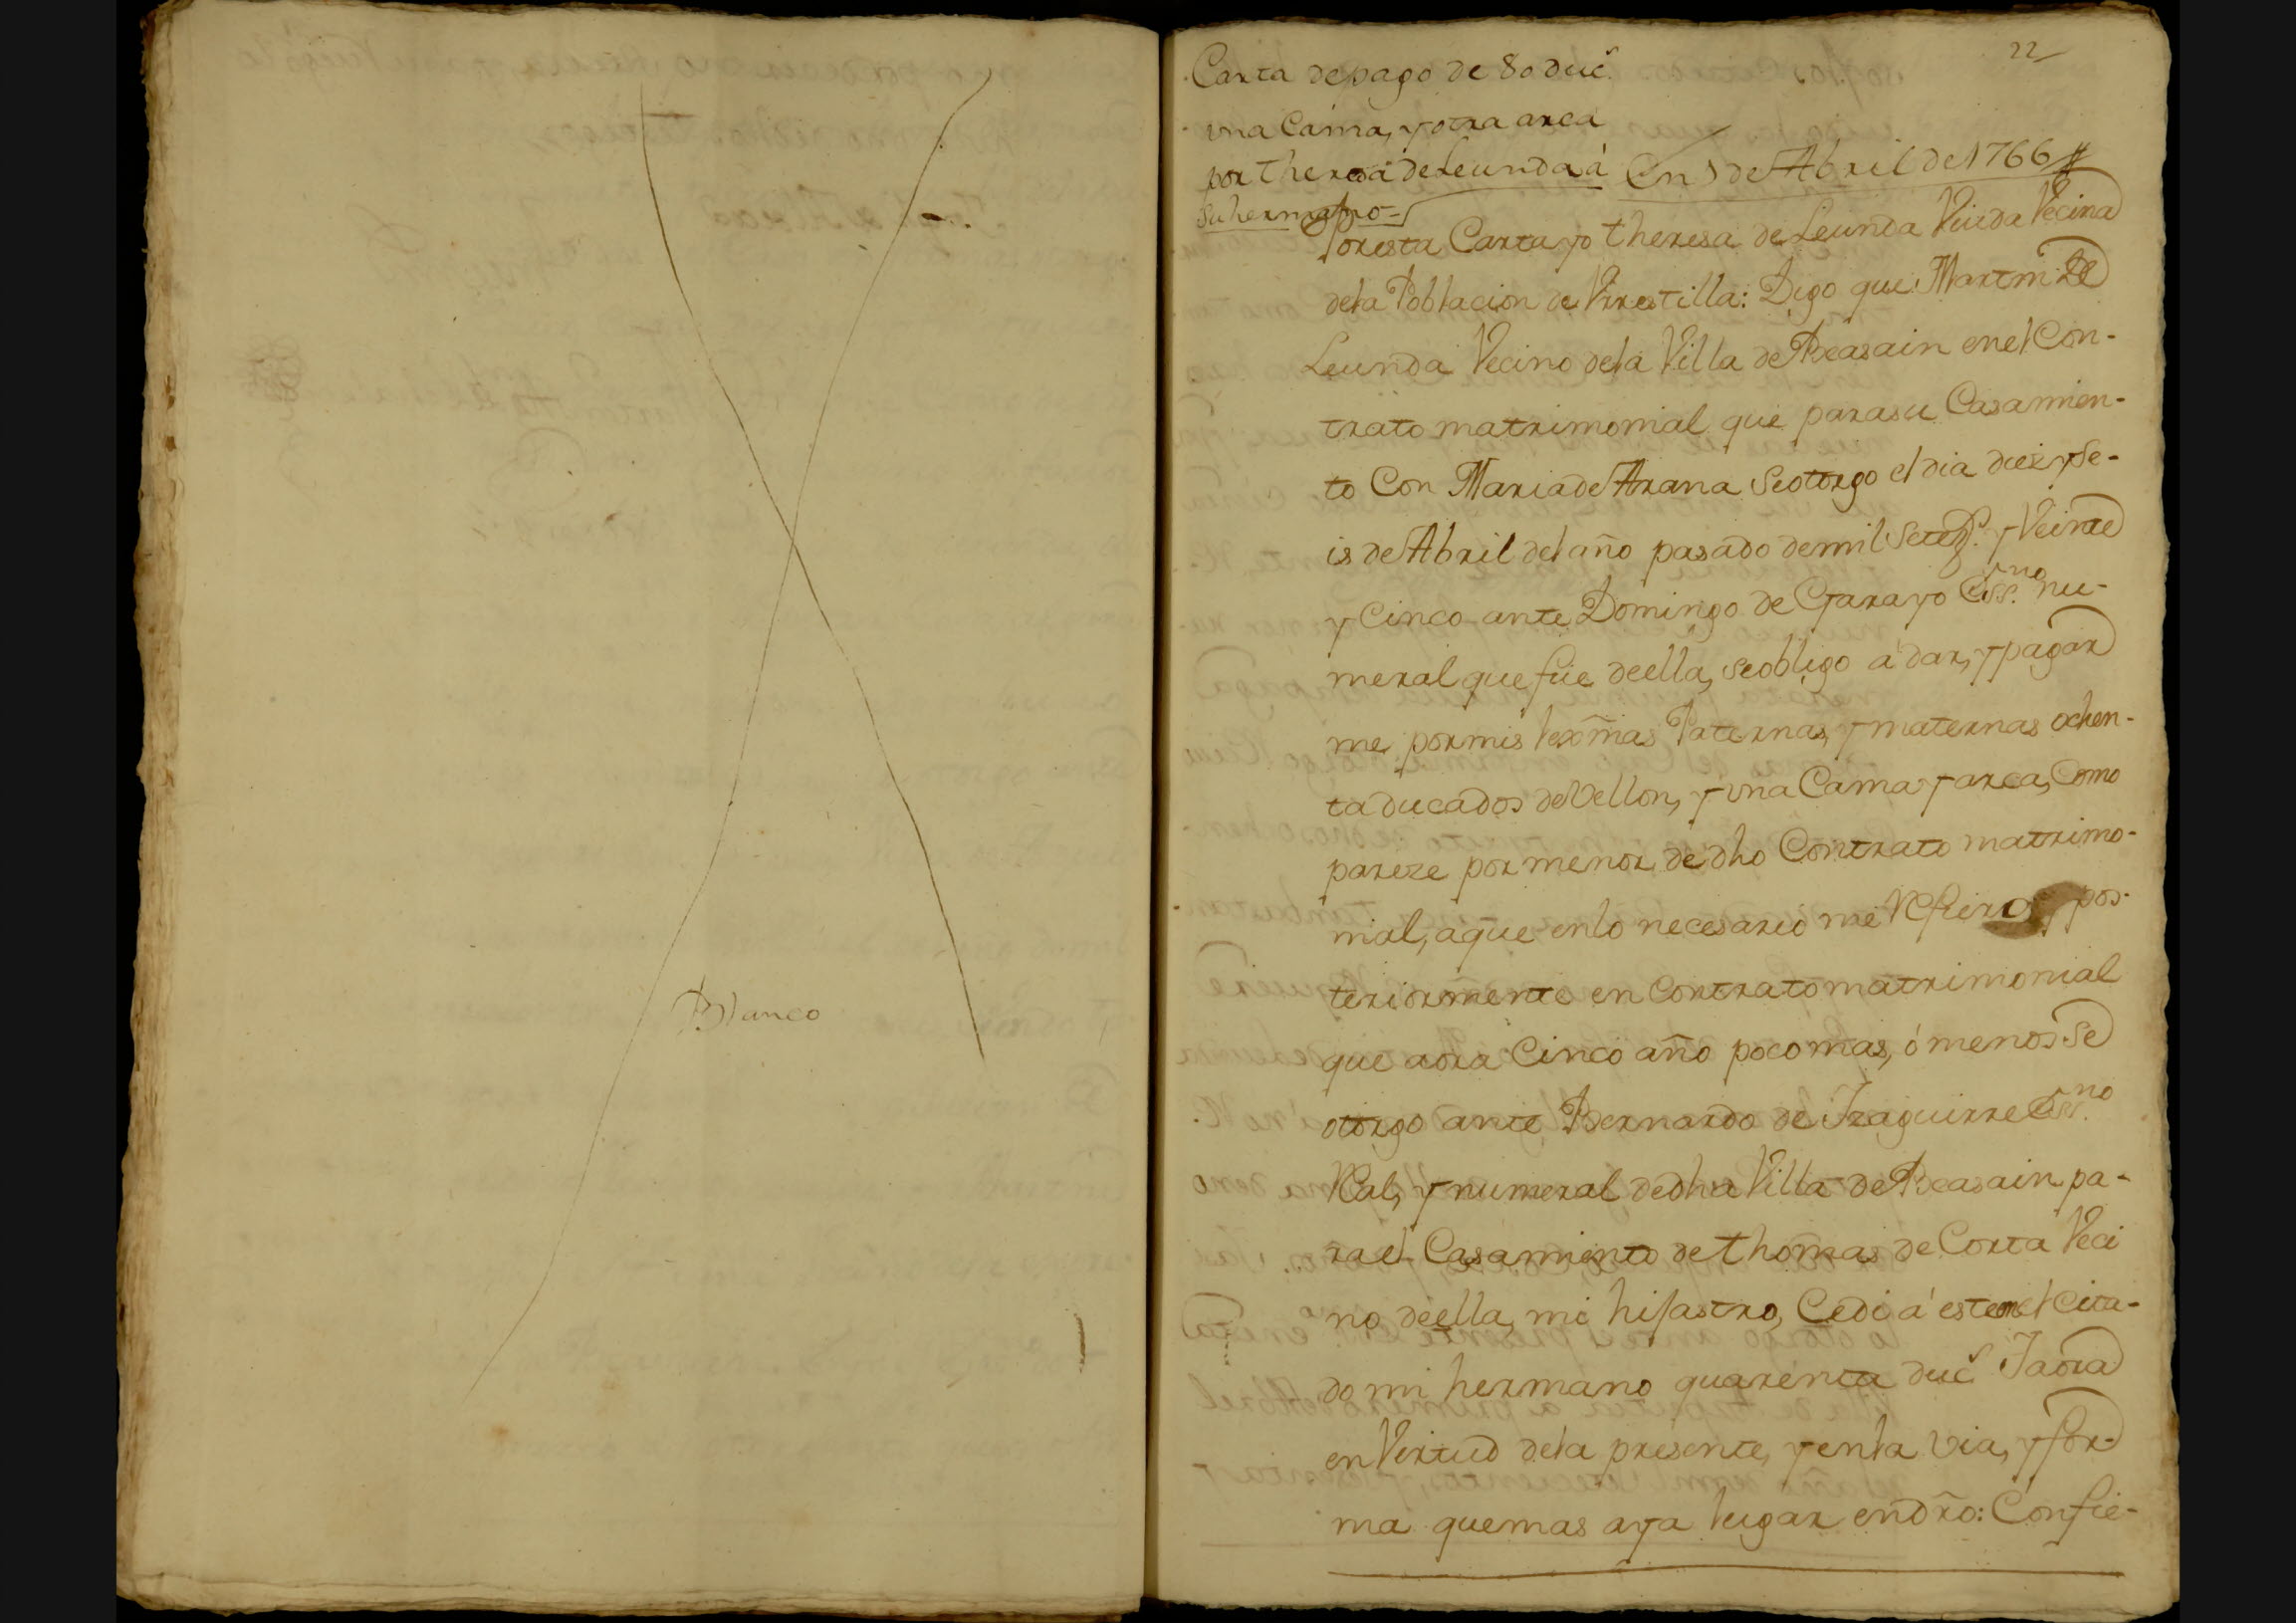 Blanco
22
Carta de pago de 80 duc.s
una Cama, y otra arca
por Theresa de Leunda à
su hermano =
En 1 de Abril de 1766 //
Por esta Carta yo Theresa de Leunda Viuda Vecina
dela Poblacion de Urrestilla: Digo que Martin de
Leunda Vecino dela Villa de Beasain en el Con-
trato matrimonial que parasu Casamien-
to Con Maria de Arana Seotorgo el dia diez y Se-
is de Abril del año pasado demil Setez.s y Veinte
y Cinco ante Domingo de Garayo Ess.no nu-
meral que fue deella, seobligo a dar, y pagar
me por mis lexmas Paternas, y maternas ochen-
ta ducados de Vellon, y una Cama y arca, Como
pareze por menor de dho Contrato matrimo-
nial, aque enlo necesario me Refiero, y pos-
teriormente en Contrato matrimonial
que aora Cinco año poco mas, ó menos Se
otorgo ante Bernardo de Izaguirre Ess.no
Real, y numeral dedha Villa de Beasain pa-
rael Casamiento de Thomas de Corta Veci
no deella, mi hijastro, Cedi á este en el Cita-
do mi hermano quarenta duc.s Iaora
en Virtud dela presente, y enla via, y for-
ma quemas aya lugar en dro: Confie-